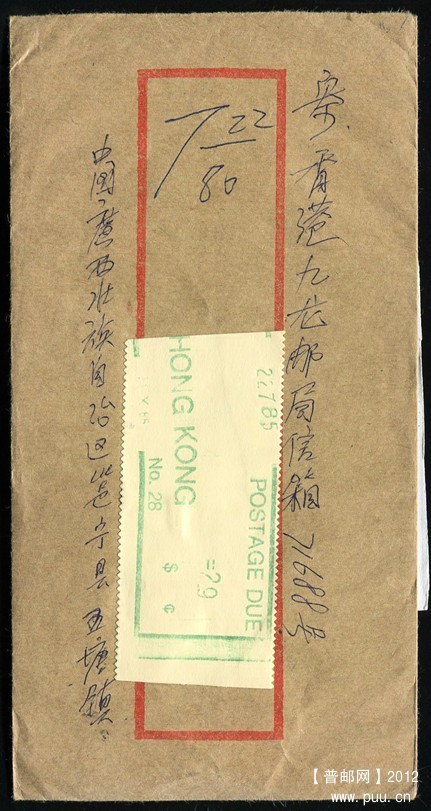 寄 香港九龙邮局信箱71688号
T 22/80
HONG KONG
POSTAGE DUE
No. 28
=79
$ ¢
22785
中国广西壮族自治区邕宁县五塘镇
【普邮网】2012
www.puu.cn